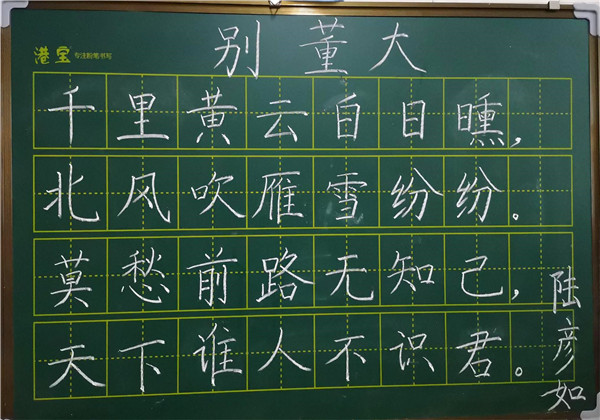 港宝 专注粉笔书写
别董大
千里黄云自日曛,
北风吹雁雪纷纷。
莫愁前路无知己,
天下谁人不识君。
陆彦如